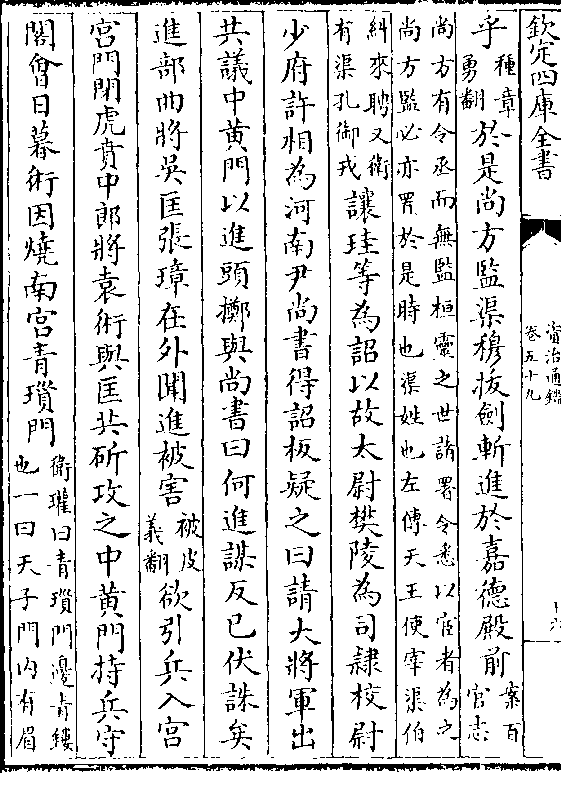 欽定四庫全書
資治通鑑
卷五十九
十六
乎種章勇翻於是尚方監渠穆拔劍斬進於嘉德殿前案百官志
尚方有令丞而無監桓靈之世諸署令悉以宦者為之
尚方監必亦置於是時也渠姓也左傳天王使宰渠伯
糾來聘又衛有渠孔御戎讓珪等為詔以故太尉樊陵為司隸校尉
少府許相為河南尹尚書得詔板疑之曰請大將軍出
共議中黄門以進頭擲與尚書曰何進謀反已伏誅矣
進部曲將吳匡張璋在外聞進被害被皮義翻欲引兵入宮
宮門閉虎賁中郎將袁術與匡共斫攻之中黄門持兵守
閤會日暮術因燒南宮青瑣門衛瓘曰青瑣門邊青鏤也一曰天子門内有眉